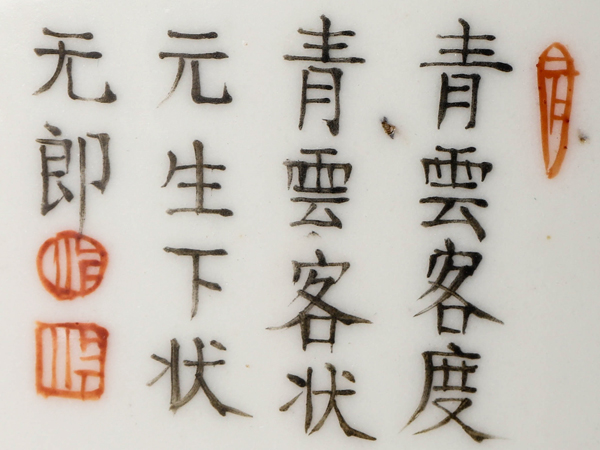 青雲客度
青雲客状
元生下状
无郎